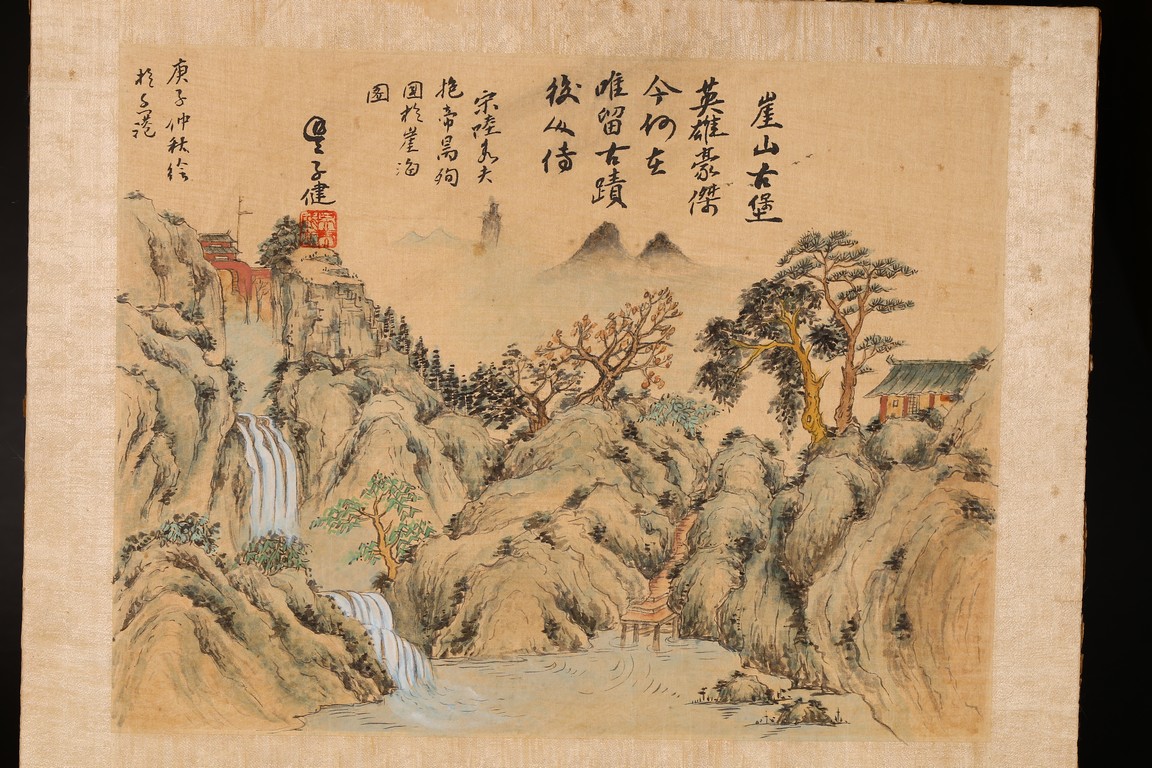 崖山古堡
英雄豪傑
今何在
唯留古蹟
後人傳
宋陸秀夫
抱帝昺殉
国於崖海
圖
子健
庚子仲秋繪
於香港